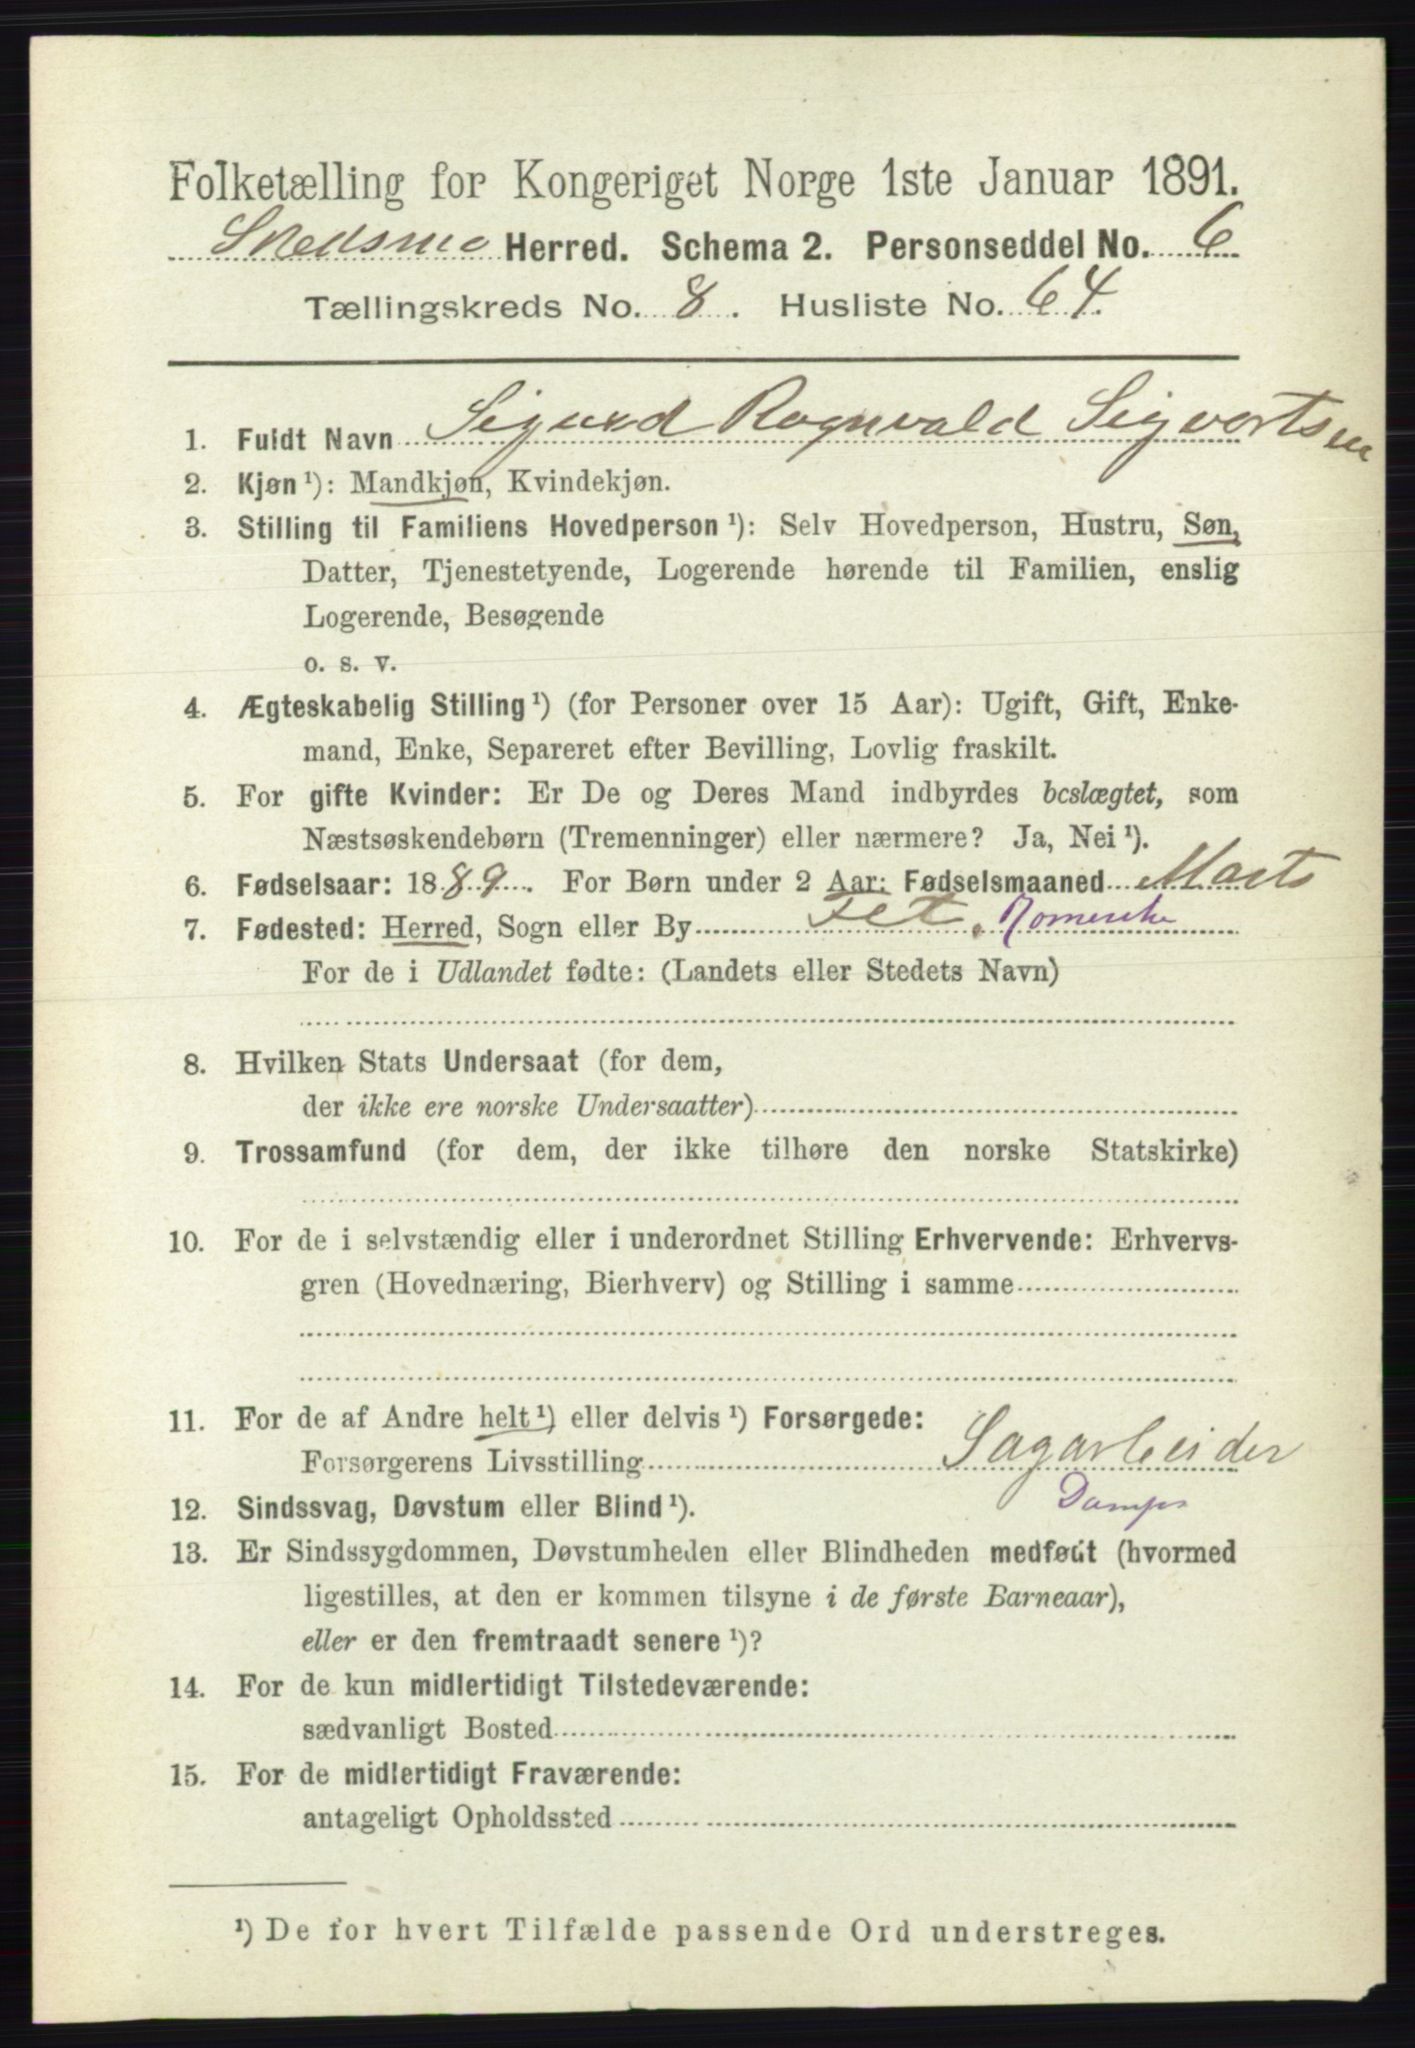 Folketælling for Kongeriget Norge 1ste Januar 1891.
Skedsmo Herred. Schema 2. Personseddel No. 6
Tællingskreds No. 8. Husliste No. 64.
1. Fuldt Navn Sigurd Ragnvald Sigvartsen
2. Kjøn ¹): Mandkjøn, Kvindekjøn.
3. Stilling til Familiens Hovedperson ¹): Selv Hovedperson, Hustru, Søn,
Datter, Tjenestetyende, Logerende hørende til Familien, enslig
Logerende, Besøgende
o. s. v.
4. Ægteskabelig Stilling ¹) (for Personer over 15 Aar): Ugift, Gift, Enke-
mand, Enke, Separeret efter Bevilling, Lovlig fraskilt.
5. For gifte Kvinder: Er De og Deres Mand indbyrdes beslægtet, som
Næstsøskendebørn (Tremenninger) eller nærmere? Ja, Nei ¹).
6. Fødselsaar: 1889. For Børn under 2 Aar: Fødselsmaaned Marts
7. Fødested: Herred, Sogn eller By Fet. Romerike
For de i Udlandet fødte: (Landets eller Stedets Navn)
8. Hvilken Stats Undersaat (for dem,
der ikke ere norske Undersaatter)
9. Trossamfund (for dem, der ikke tilhøre den norske Statskirke)
10. For de i selvstændig eller i underordnet Stilling Erhvervende: Erhvervs-
gren (Hovednæring, Bierhverv) og Stilling i samme
11. For de af Andre helt ¹) eller delvis ¹) Forsørgede:
Forsørgerens Livsstilling Sagarbeider
Damps
12. Sindssvag, Døvstum eller Blind ¹).
13. Er Sindssygdommen, Døvstumheden eller Blindheden medfødt (hvormed
ligestilles, at den er kommen tilsyne i de første Barneaar),
eller er den fremtraadt senere ¹)?
14. For de kun midlertidigt Tilstedeværende:
sædvanligt Bosted
15. For de midlertidigt Fraværende:
antageligt Opholdssted
¹) De for hvert Tilfælde passende Ord understreges.